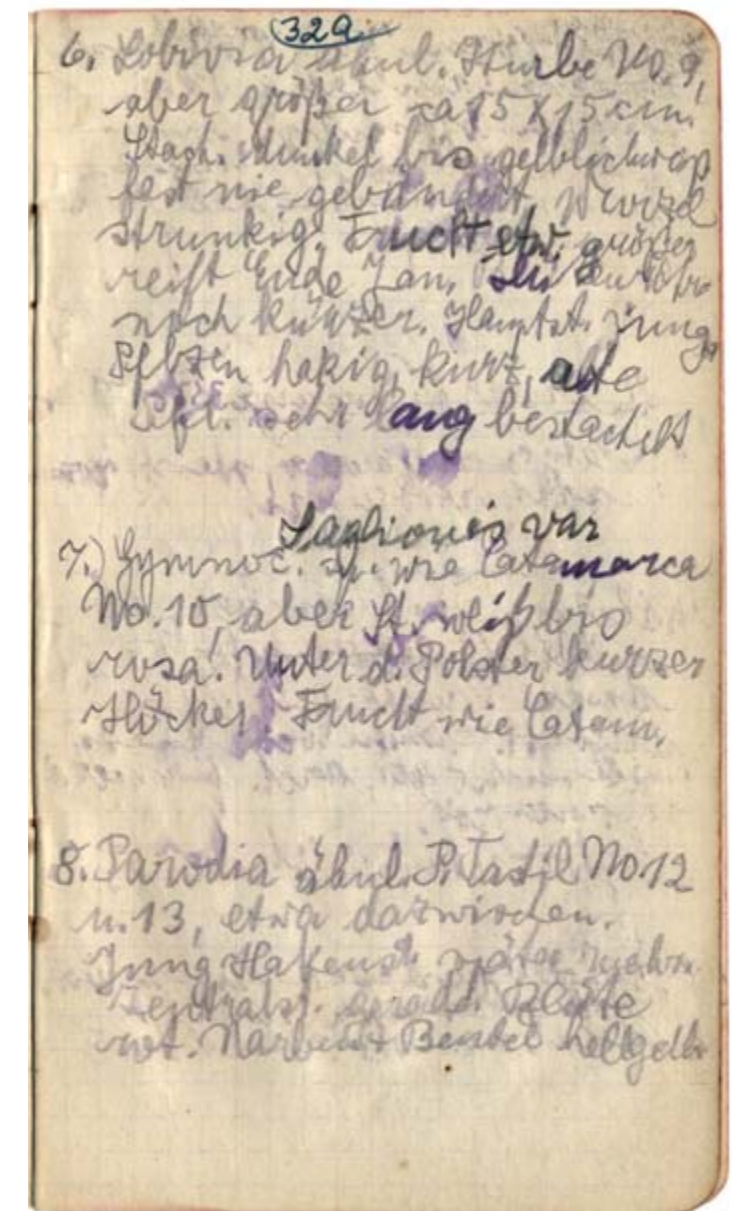 32a
6. Lobivia ähnl. Iturbe No. 9,
aber größer ca 15 x 15 cm.
Stach. dunkel bis gelblichweiß
fast nie gebändert, Wurzel
strunkig. Frucht etw. größer
reift Ende Jan.
noch kürzer. Hauptst. jung.
Pflzen hakig, kurz, alte
sehr lang bestachelt
Saglionis var
7.) Gymnoc. sp. wie Catamarca
No. 10, aber St. weiß bis
rosa! Unter d. Polster kurzer
Höcker. Frucht wie Catam.
8. Parodia ähnl. P. Tastil No. 12
u. 13, etwa dazwischen.
Jung Hakenst. später
Zentralst. Blüte
rot. Narbe + Beutel hellgelb